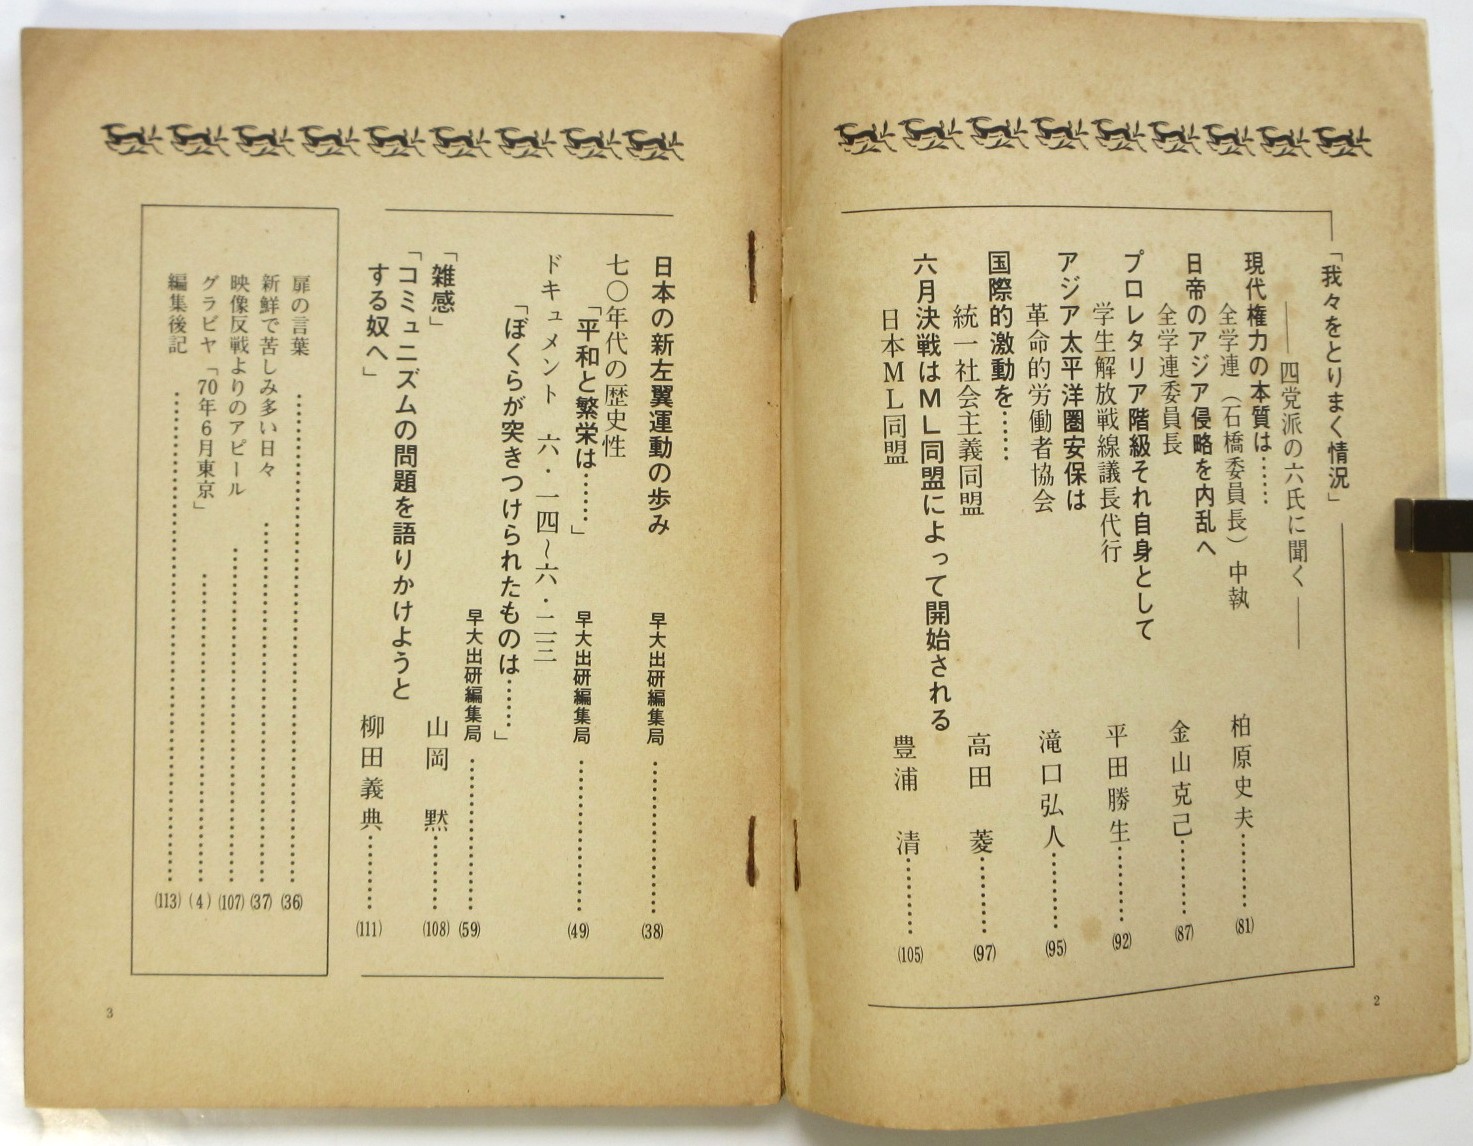 「我々をとりまく情況」
――四党派の六氏に聞く――
現代権力の本質は……
全学連（石橋委員長）中執 柏原史夫………(81)
日帝のアジア侵略を内乱へ
全学連委員長 金山克己………(87)
プロレタリア階級それ自身として
学生解放戦線議長代行 平田勝生………(92)
アジア太平洋圏安保は
革命的労働者協会 滝口弘人………(95)
国際的激動を……
統一社会主義同盟 高田 菱………(97)
六月決戦はML同盟によって開始される
日本ML同盟 豊浦 清………(105)
2
日本の新左翼運動の歩み 早大出研編集局………(38)
七〇年代の歴史性
「平和と繁栄は……」 早大出研編集局………(49)
ドキュメント 六・一四～六・二三
「ぼくらが突きつけられたものは……」
早大出研編集局………(59)
「雑感」 山岡 黙………(108)
「コミュニズムの問題を語りかけようと
する奴へ」 柳田義典………(111)
扉の言葉………(36)
新鮮で苦しみ多い日々………(37)
映像反戦よりのアピール………(107)
グラビヤ「70年6月東京」………(4)
編集後記………(113)
3